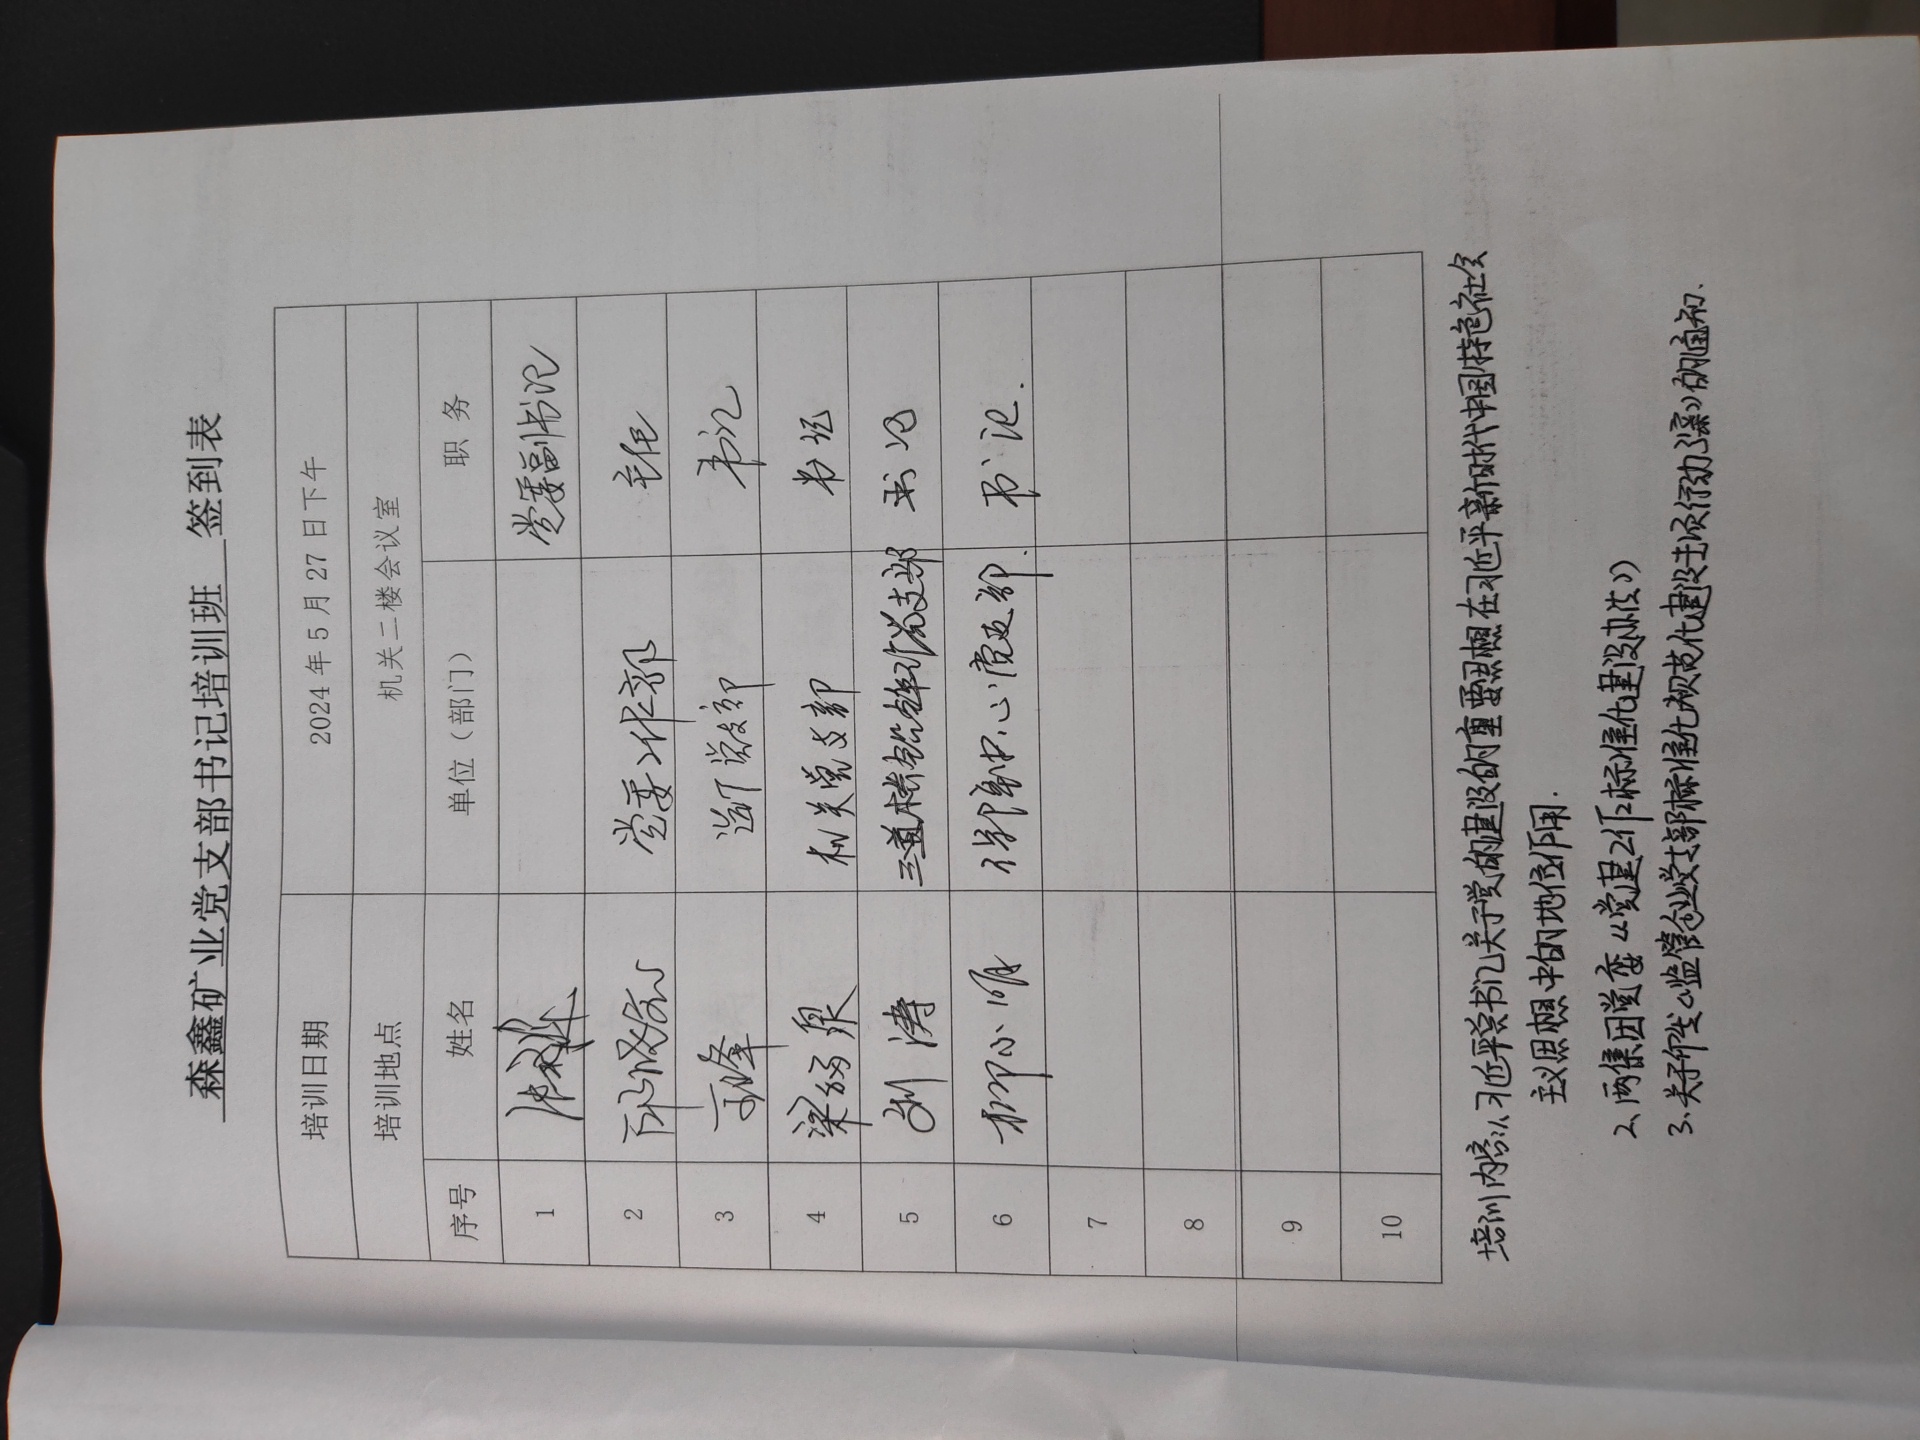 森鑫矿业党支部书记培训班 签到表
培训日期 2024年5月27日下午
培训地点 机关二楼会议室
序号 姓名 单位（部门） 职务
1 党委副书记
2 党委工作部 主任
3 王峰 选厂党支部 书记
4 梁 泉 机关党支部 书记
5 刘涛 三道桥铅锌 党支部 书记
6 柳小明 中心党支部 书记
7
8
9
10
培训内容：1、习近平总书记关于党的建设的重要思想在习近平新时代中国特色社会
主义思想中的地位作用.
2、两集团党委《党建工作标准化建设办法》
3、关于印发《监管企业党支部标准化规范化建设专项行动方案》的通知.